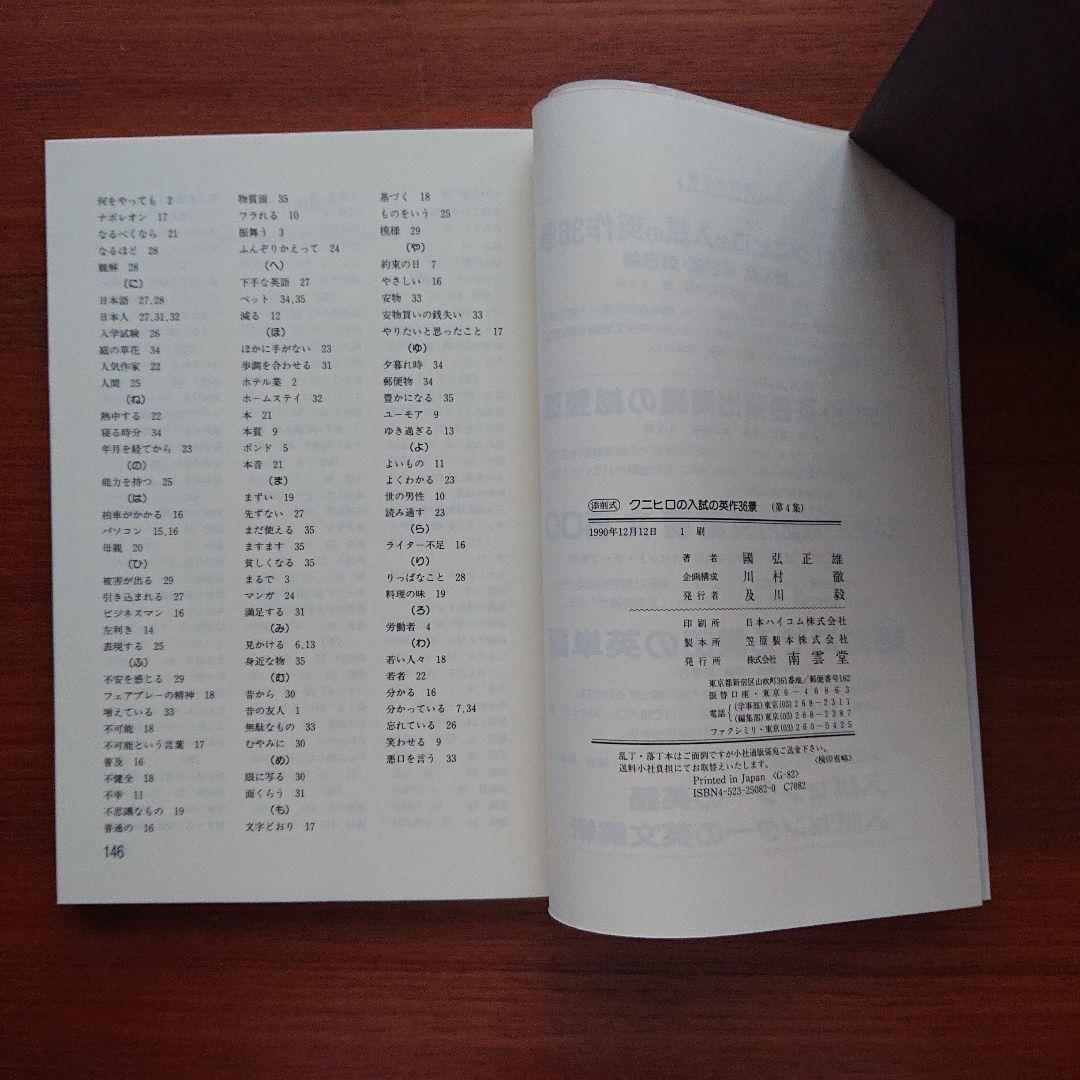 何をやっても 2
ナポレオン 17
なるべくなら 21
なるほど 28
難解 28
(に)
日本語 27,28
日本人 27,31,32
入学試験 26
庭の草花 34
人気作家 22
人間 25
(ね)
熱中する 22
寝る時分 34
年月を経てから 23
(の)
能力を持つ 25
(は)
拍車がかかる 16
パソコン 15,16
母親 20
(ひ)
被害が出る 29
引き込まれる 27
ビジネスマン 16
左利き 14
表現する 25
(ふ)
不安を感じる 29
フェアプレーの精神 18
増えている 33
不可能 18
不可能という言葉 17
普及 16
不健全 18
不幸 11
不思議なもの 19
普通の 16
物質面 35
フラれる 10
振舞う 3
ふんぞりかえって 24
(へ)
下手な英語 27
ペット 34,35
減る 12
(ほ)
ほかに手がない 23
歩調を合わせる 31
ホテル業 2
ホームステイ 32
本 21
本質 9
ポンド 5
本音 21
(ま)
まずい 19
先ずない 27
まだ使える 35
ますます 35
貧しくなる 35
まるで 3
マンガ 24
満足する 31
(み)
見かける 6,13
身近な物 35
(む)
昔から 30
昔の友人 1
無駄なもの 33
むやみに 30
(め)
眼に写る 30
面くらう 31
(も)
文字どおり 17
基づく 18
ものをいう 25
模様 29
(や)
約束の日 7
やさしい 16
安物 33
安物買いの銭失い 33
やりたいと思ったこと 17
(ゆ)
夕暮れ時 34
郵便物 34
豊かになる 35
ユーモア 9
ゆき過ぎる 13
(よ)
よいもの 11
よくわかる 23
世の男性 10
読み通す 23
(ら)
ライター不足 16
(り)
りっぱなこと 28
料理の味 19
(ろ)
労働者 4
(わ)
若い人々 18
若者 22
分かる 16
分かっている 7,34
忘れている 26
笑わせる 9
悪口を言う 33
146
添削式 クニヒロの入試の英作36景 (第4集)
1990年12月12日 1 刷
著者 國弘正雄
企画構成 川村徹
発行者 及川毅
印刷所 日本ハイコム株式会社
製本所 笠原製本株式会社
発行所 株式会社 南雲堂
東京都新宿区山吹町361番地／郵便番号162
振替口座・東京6-46863
電話 (学事部)東京(03)268-2311
(編集部)東京(03)268-2387
ファクシミリ・東京(03)260-5425
乱丁・落丁本はご面倒ですが小社通販係宛ご送金下さい。
送料小社負担にてお取替えいたします。 〈検印省略〉
Printed in Japan 〈G-82〉
ISBN4-523-25082-0 C7082